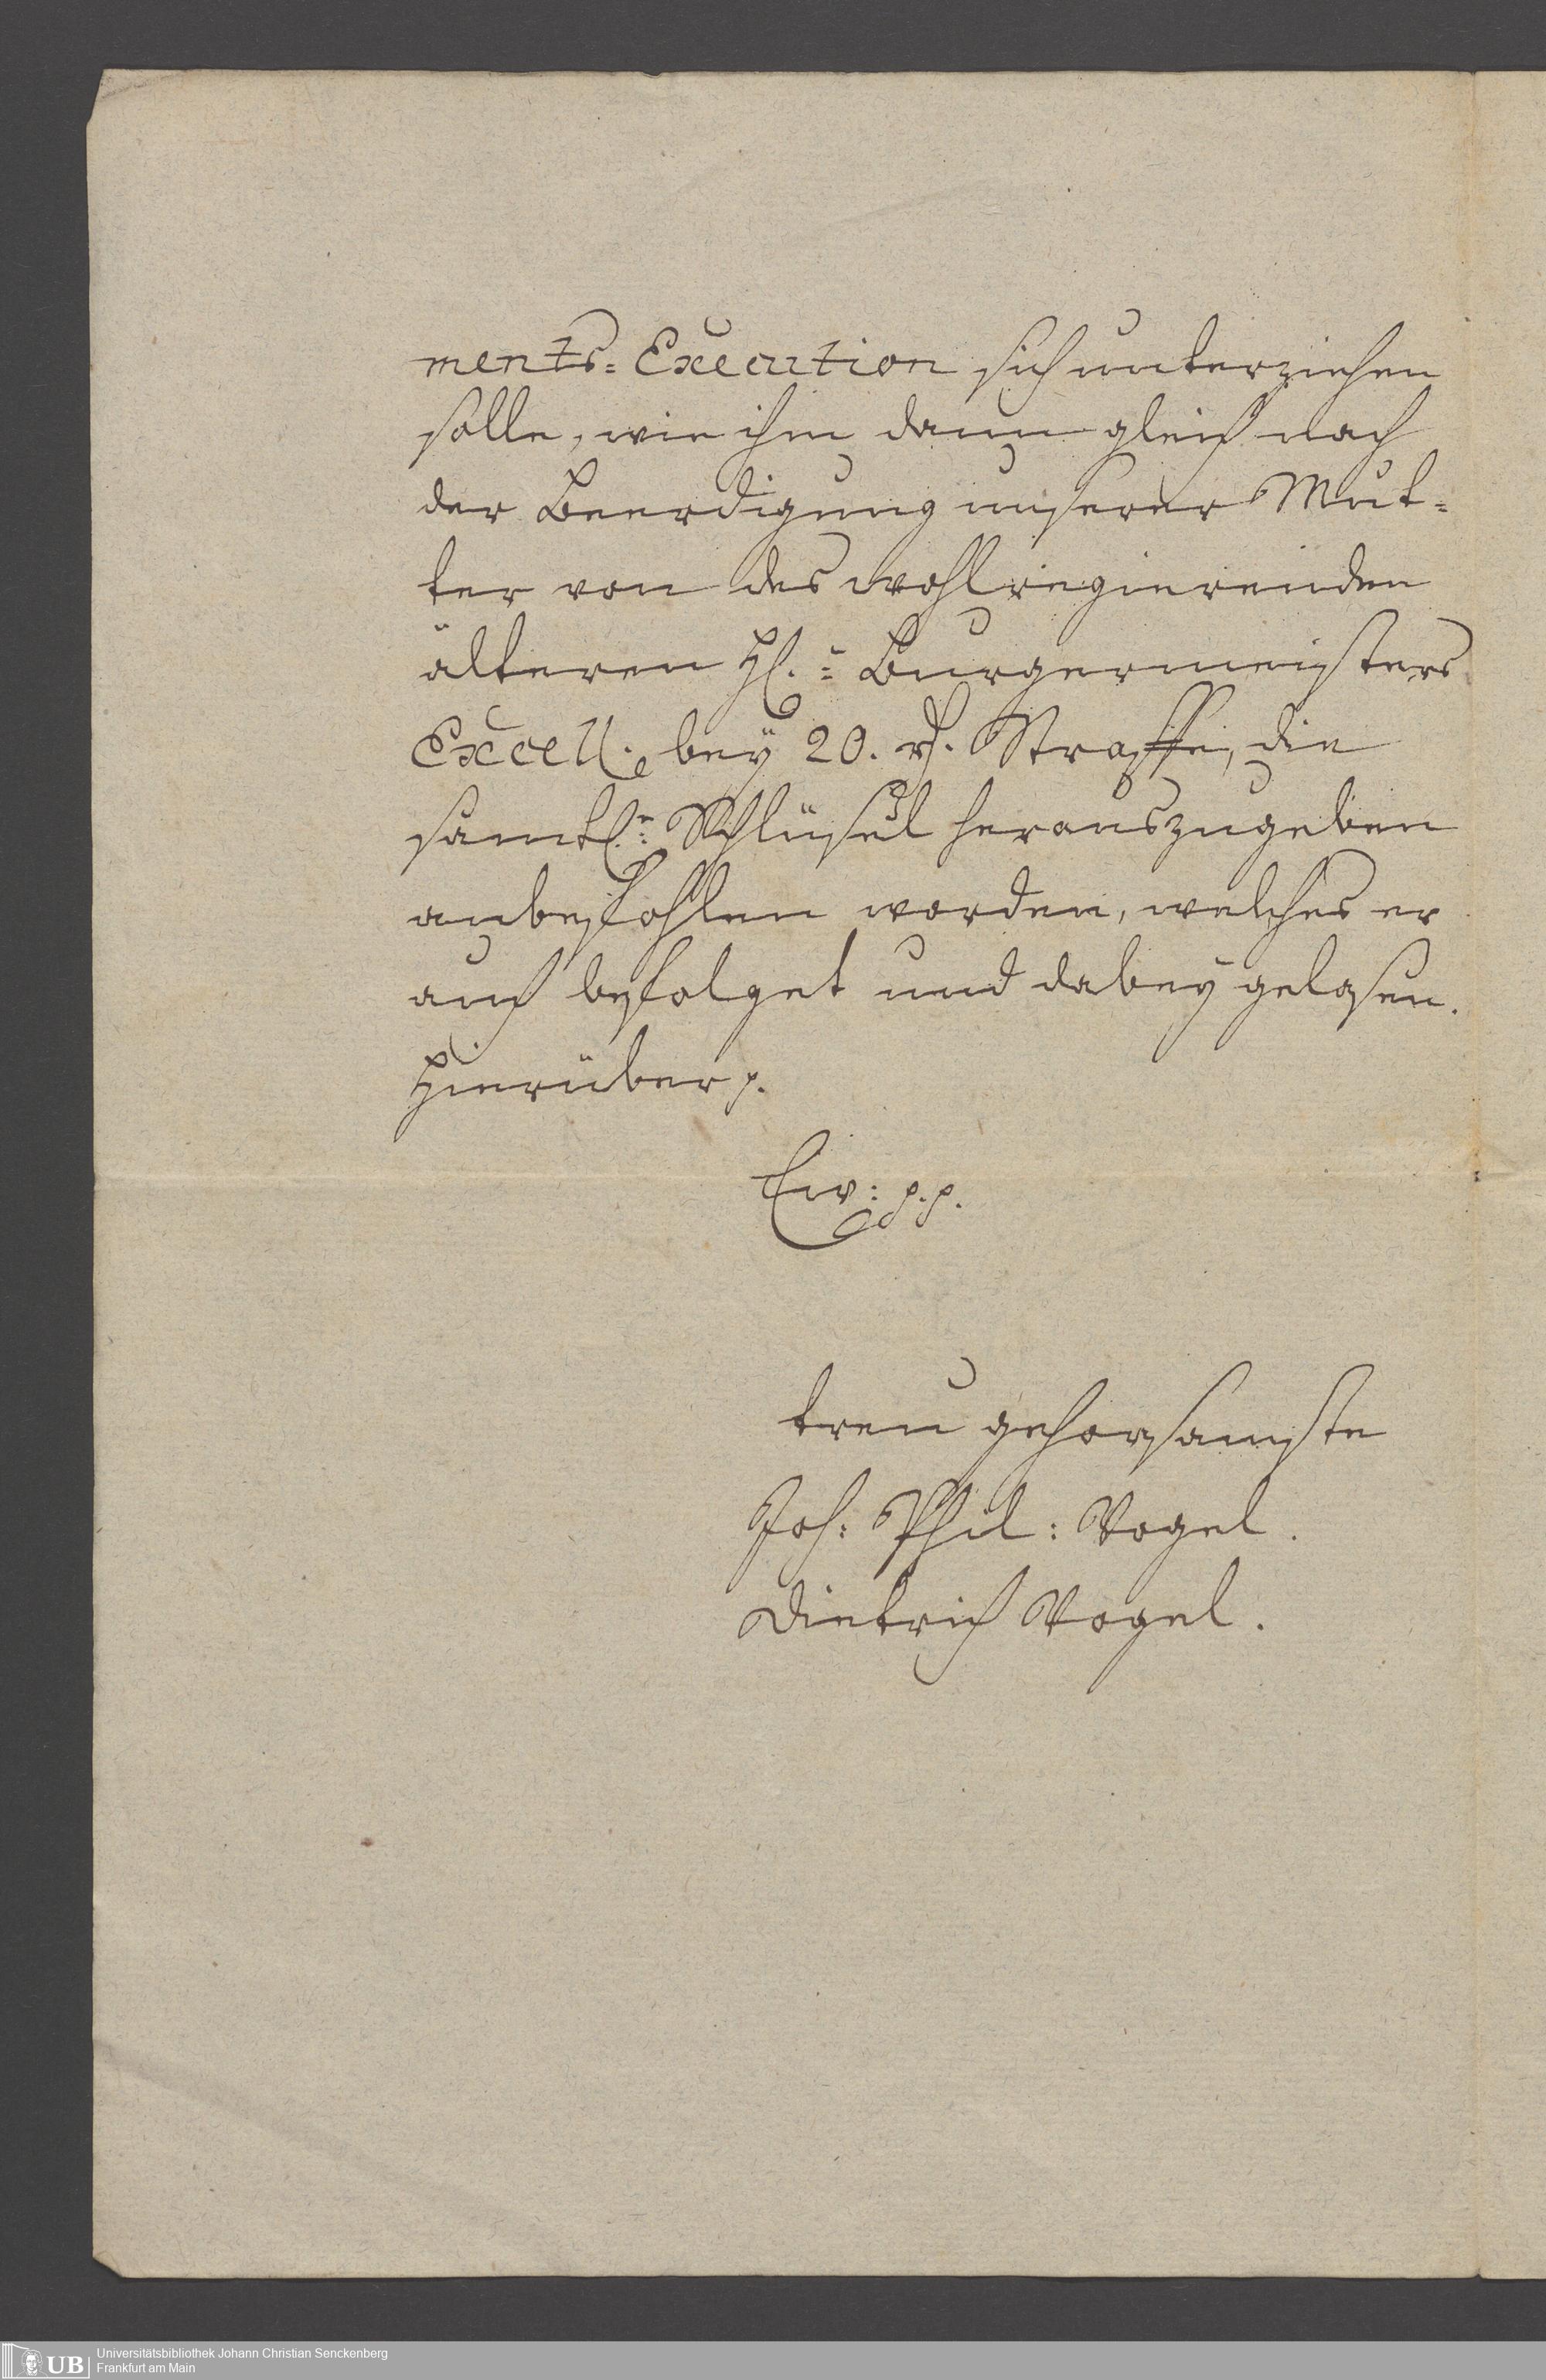 ments-Execution sich unterziehen
solle, wie ihm dann gleich nach
der Beerdigung unserer Mut-
ter von des wohlregierenden
älteren H.: Burgermeisters
Excell. bey 20. rh. Straffe, die
sämtl: Schlüsel herauszugeben
anbefohlen worden, welches er
auch befolget und dabey gelasen.
Hierüber p.
Ew: p.p.
treu gehorsamste
Joh: Phil: Vogel.
Dietrich Vogel.
UB
Universitätsbibliothek Johann Christian Senckenberg
Frankfurt am Main